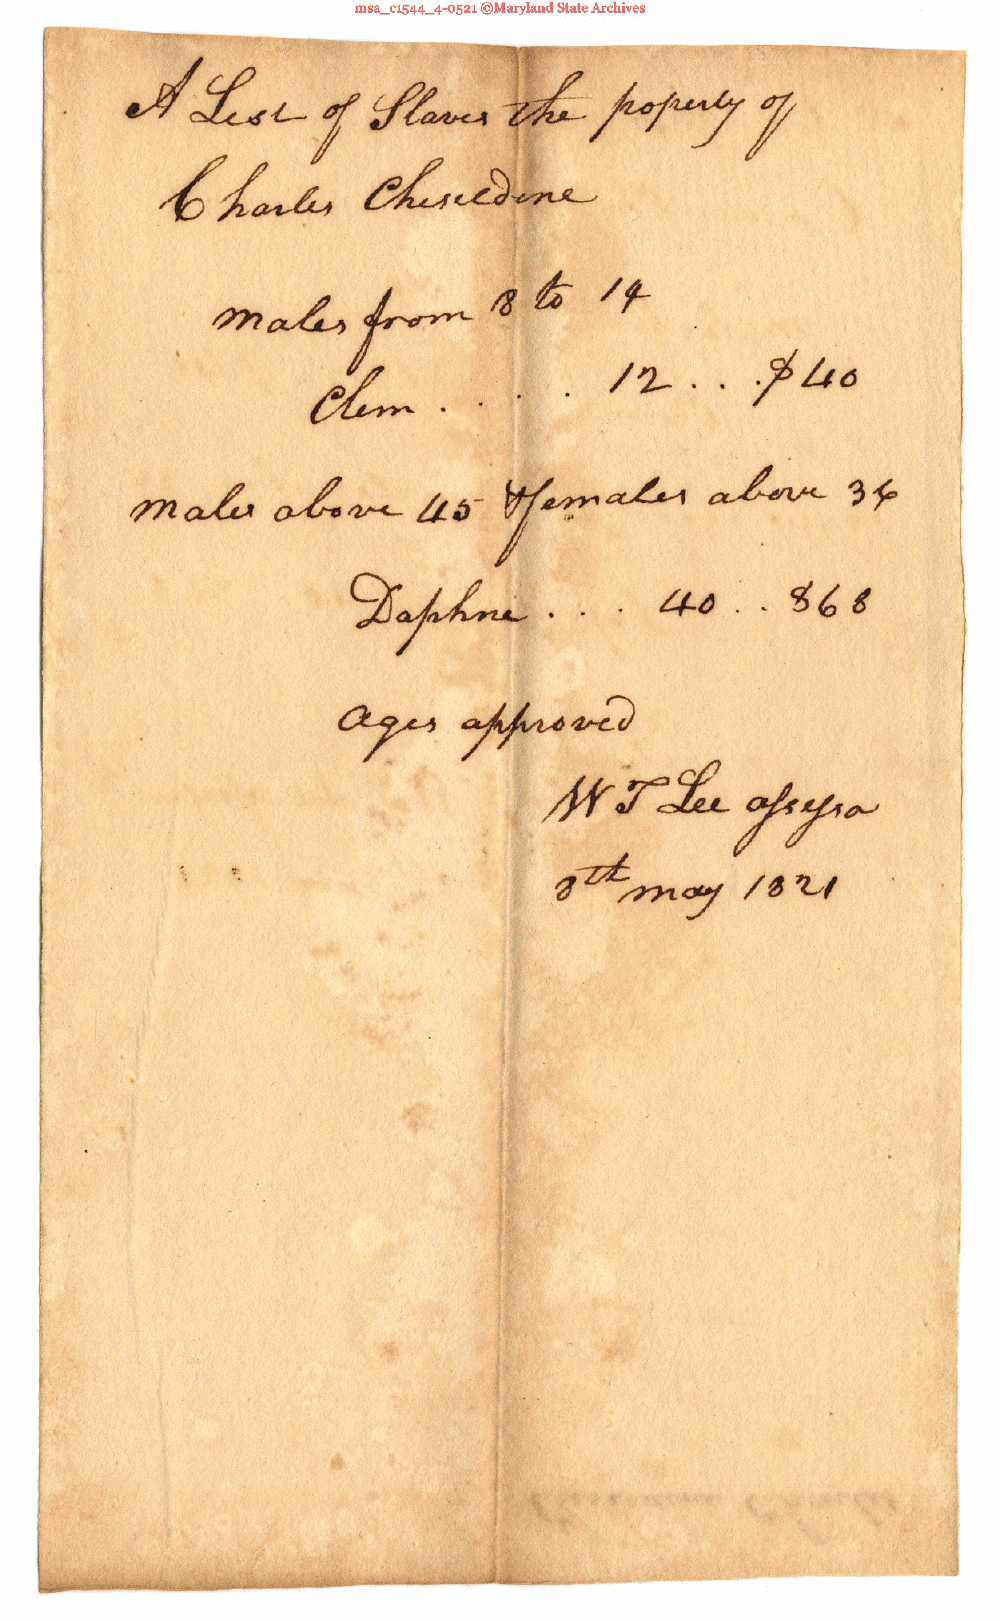 msa_c1544_4-0521 ©Maryland State Archives
A List of Slaves the poperty of
Charles Cheseldine
males from 8 to 14
Clem . . . . 12 . . . $40
males above 45 & females above 36
Daphne . . . 40 . . $68
ages approved
W T Lee assesso
8th may 1821